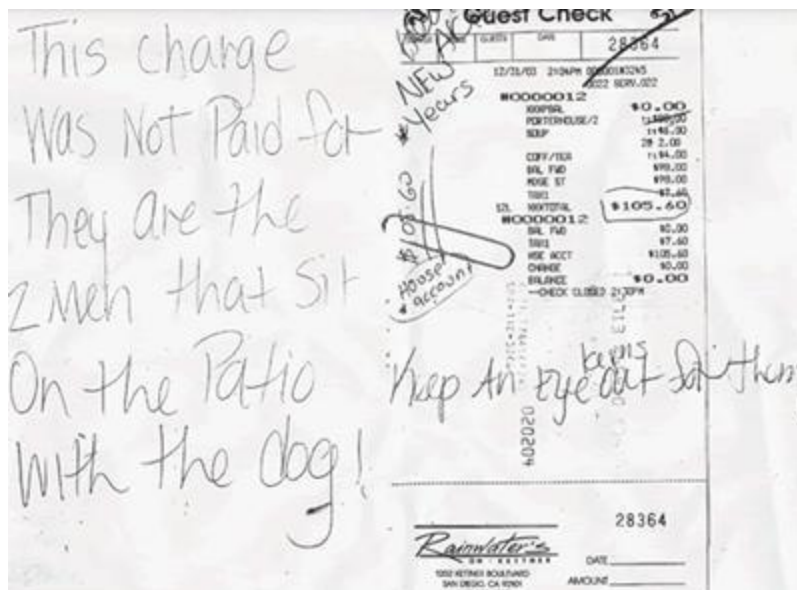 This charge
Was Not Paid for
They are the
2 Men that Sit
On the Patio
with the dog!
Guest Check
GUESTS
DATE
28364
NEW
Years
12/31/03 2:34PM
0022 SERV.022
#0000012
$0.00
PORTERHOUSE/2
SOUP
2@ 2.00
COFF/TEA
BAL FWD $98.00
$98.00
TAX1 $7.60
XXXTOTAL $105.60
#0000012
BAL FWD $0.00
TAX1 $7.60
HSE ACCT $105.60
CHANGE $0.00
BALANCE $0.00
--CHECK CLOSED 2:30PM
$105.60
House
account
Keep An Eye out for them
020204
28364
Rainwater's
ON · KETTNER
1202 KETTNER BOULEVARD
SAN DIEGO, CA 92101
DATE
AMOUNT